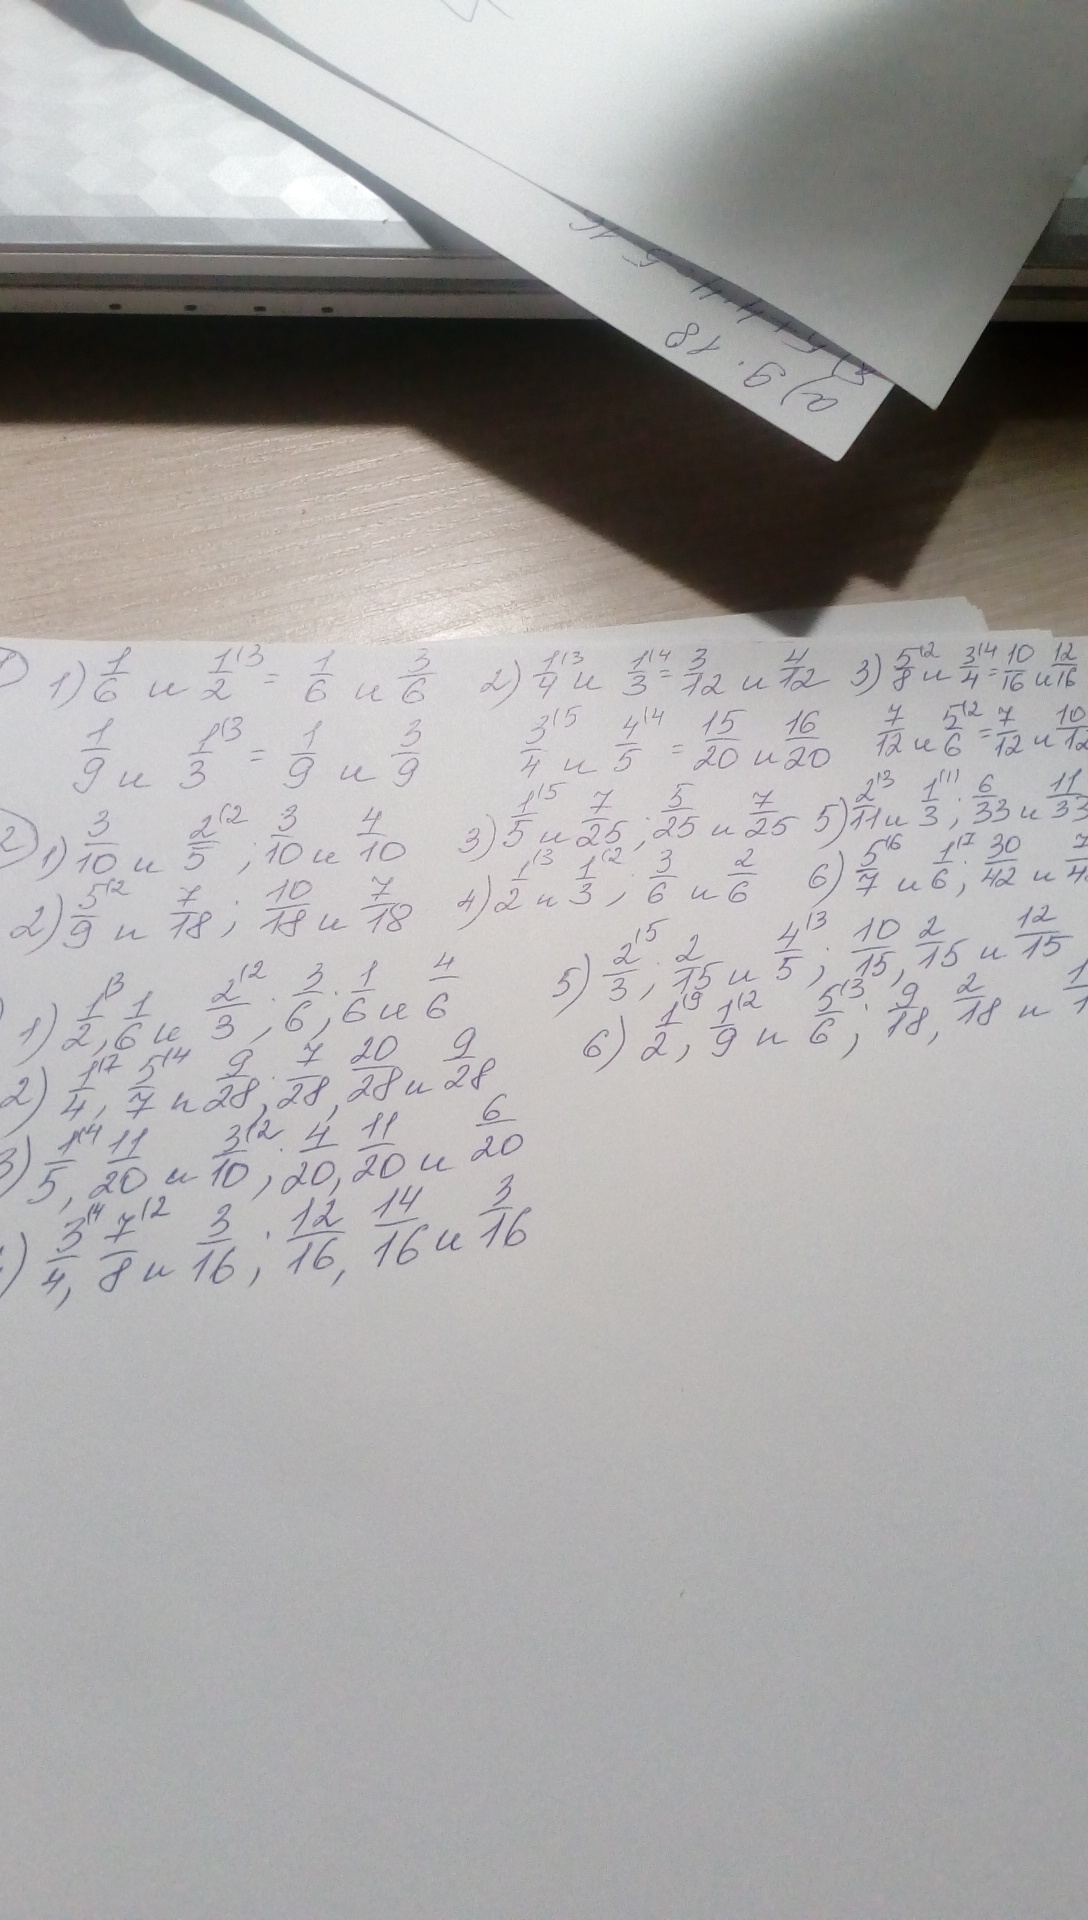 а) 9. 18
5+4·4
5
16
1) 1/6 и 1/2(3 = 1/6 и 3/6 2) 1/4(3 и 1/3(4 = 3/12 и 4/12 3) 5/8(2 и 3/4(4 = 10/16 и 12/16
1/9 и 1/3(3 = 1/9 и 3/9 3/4(5 и 4/5(4 = 15/20 и 16/20 7/12 и 5/6(2 = 7/12 и 10/12
2 1) 3/10 и 2/5(2 ; 3/10 и 4/10 3) 1/5(5 и 7/25 ; 5/25 и 7/25 5) 2/11(3 и 1/3(11 ; 6/33 и 11/33
2) 5/9(2 и 7/18 ; 10/18 и 7/18 4) 1/2(3 и 1/3(2 ; 3/6 и 2/6 6) 5/7(6 и 1/6(7 ; 30/42 и
1) 1/2(3, 1/6 и 2/3(2 ; 3/6 ; 1/6 и 4/6 5) 2/3(5 ; 2/15 и 4/5(3 ; 10/15, 2/15 и 12/15
2) 1/4(7, 5/7(4 и 9/28 ; 7/28, 20/28 и 9/28 6) 1/2(9, 1/9(2 и 5/6(3 ; 9/18, 2/18 и
3) 1/5(4, 11/20 и 3/10(2 ; 4/20, 11/20 и 6/20
) 3/4(4, 7/8(2 и 3/16 ; 12/16, 14/16 и 3/16